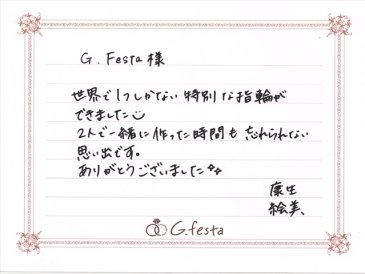 G.Festa様
世界で1つしかない特別な指輪が
できました
2人で一緒に作った時間も忘れられない
思い出です。
ありがとうございました
康生
絵美
G.festa